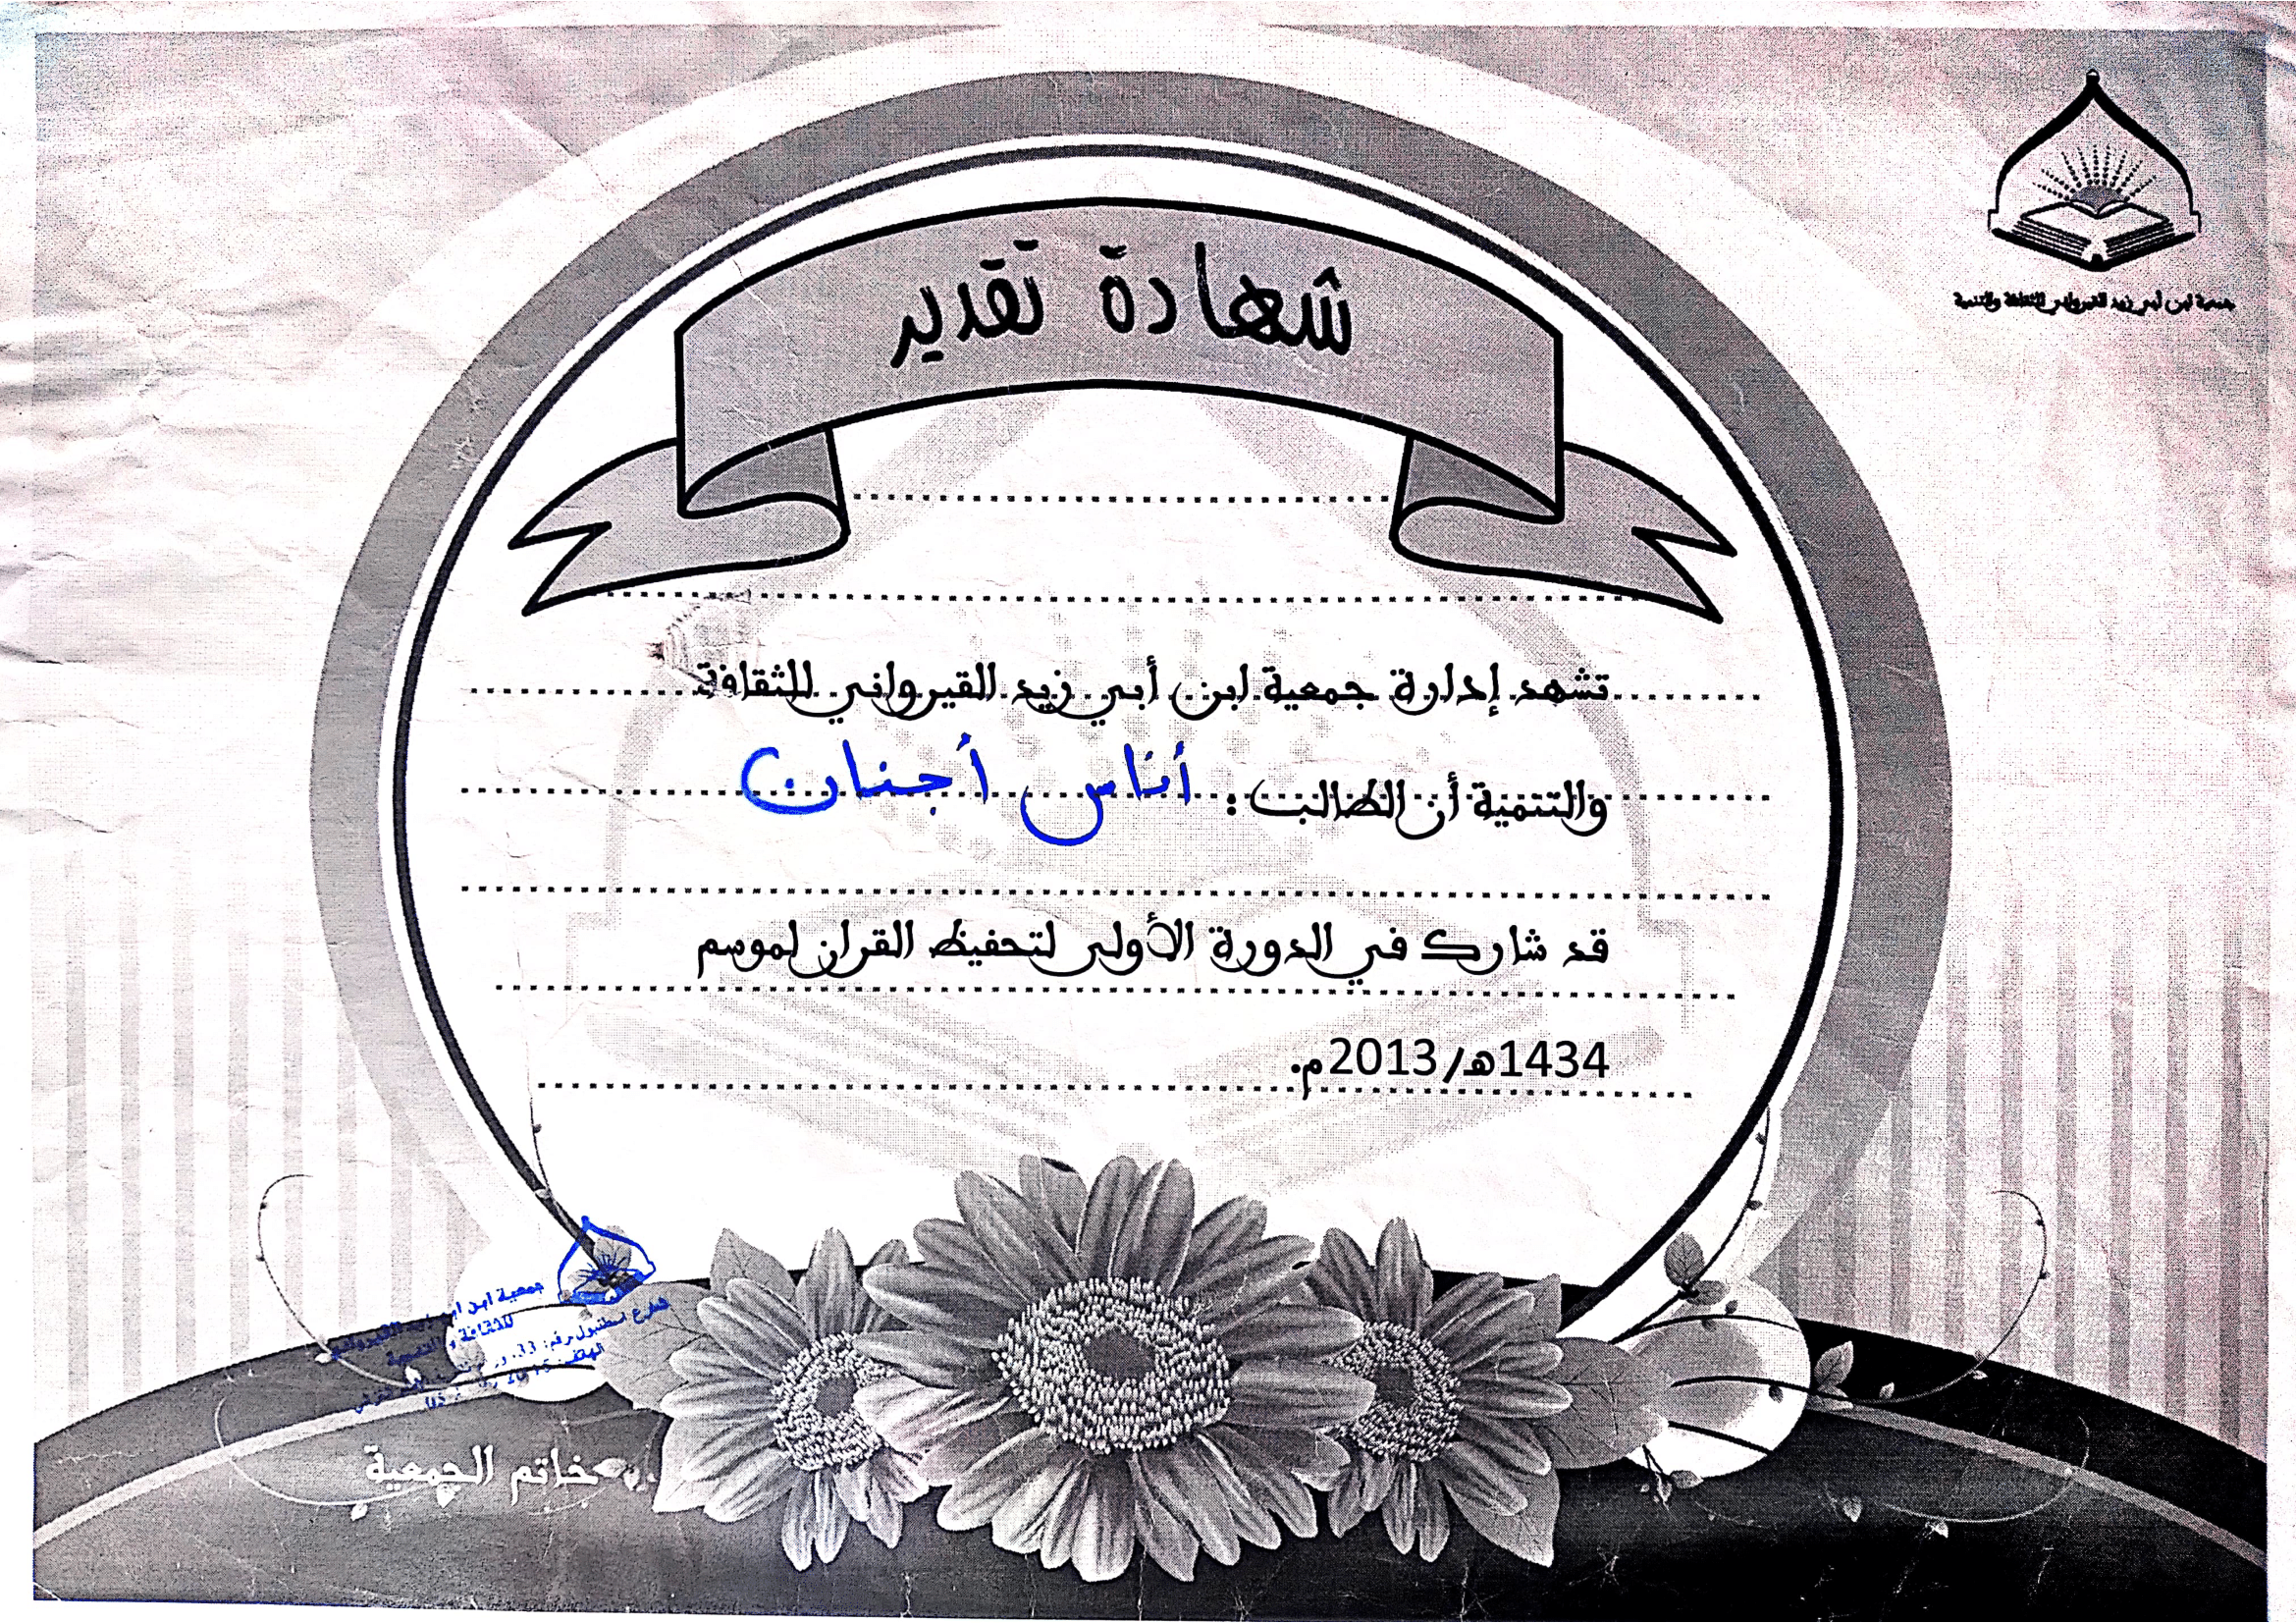 جمعية ابن أبي زيد القيرواني للثقافة والتنمية
شهادة تقدير
تشهد إدارة جمعية ابن أبي زيد القيرواني للثقافة
والتنمية أن الطالب : أناس أجنان
قد شارك في الدورة الأولى لتحفيظ القران لموسم
1434هـ/2013م.
جمعية ابن القيرواني
للثقافة و التنمية
شارع اسطنبول رقم: 33
الهاتف:
خاتم الجمعية